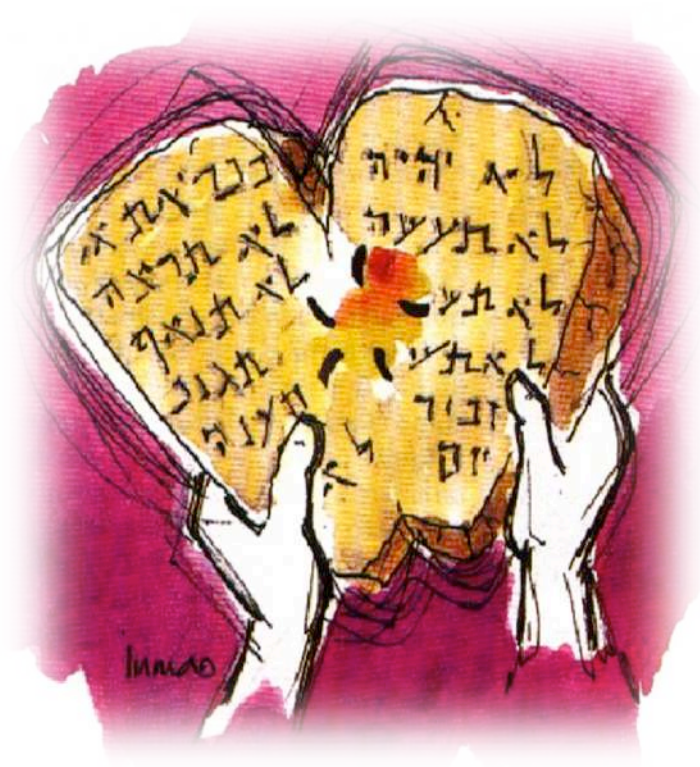 לא יהיה
לא תעשה
לא תע
לא תע
זכור
יום
כבד את א
לא תרצח
לא תנאף
תגנב
תענה
לא